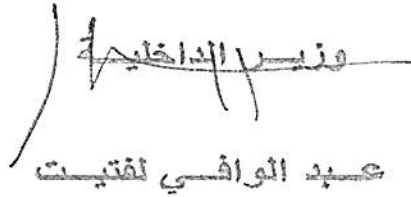 وزيـر الداخليـة
عـبـد الوافـي لفتيـت